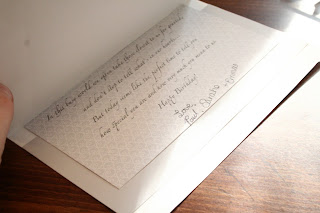 In this busy world we often take those closest to us for granted
and don't stop to tell what's in our hearts.
But today seems like the perfect time to tell you
how special you are and how very much you mean to us
Happy Birthday!
Love,
Paul,